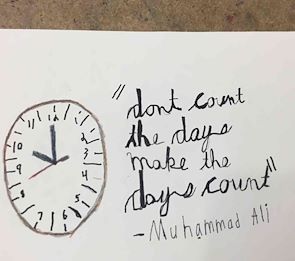 "dont count
the days
make the
days count"
- Muhammad Ali
12
1
2
3
4
5
6
7
8
9
10
11